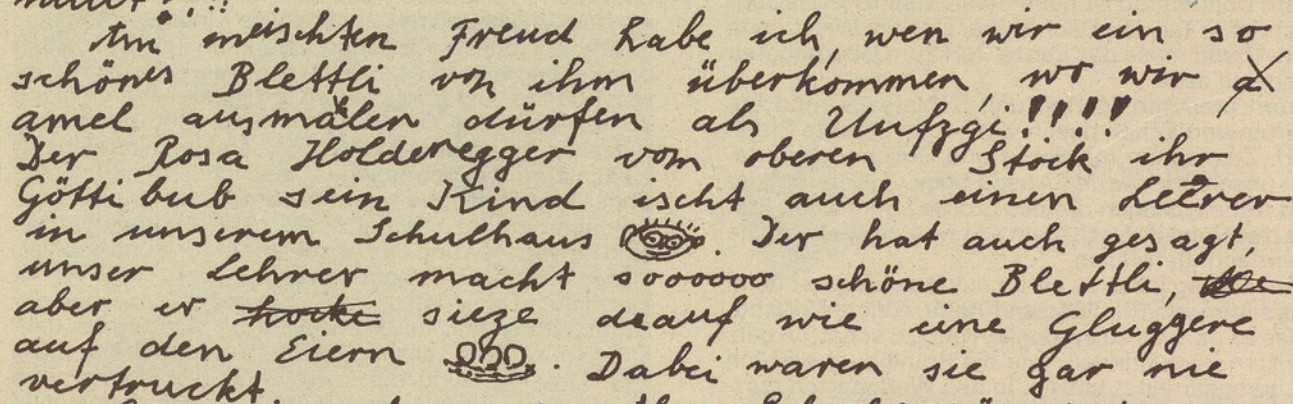 Am meischten Freud habe ich, wen wir ein so
schönes Blettli von ihm überkommen, wo wir
amel ausmälen dürfen als Uufzgi!!!!
Der Rosa Holderegger vom oberen Stock ihr
Göttibub sein Kind ischt auch einen Lehrer
in unserem Schulhaus. Der hat auch gesagt,
unser Lehrer macht soooooo schöne Blettli,
aber er hocke sieze drauf wie eine Gluggere
auf den Eiern. Dabei waren sie gar nie
vertruckt.